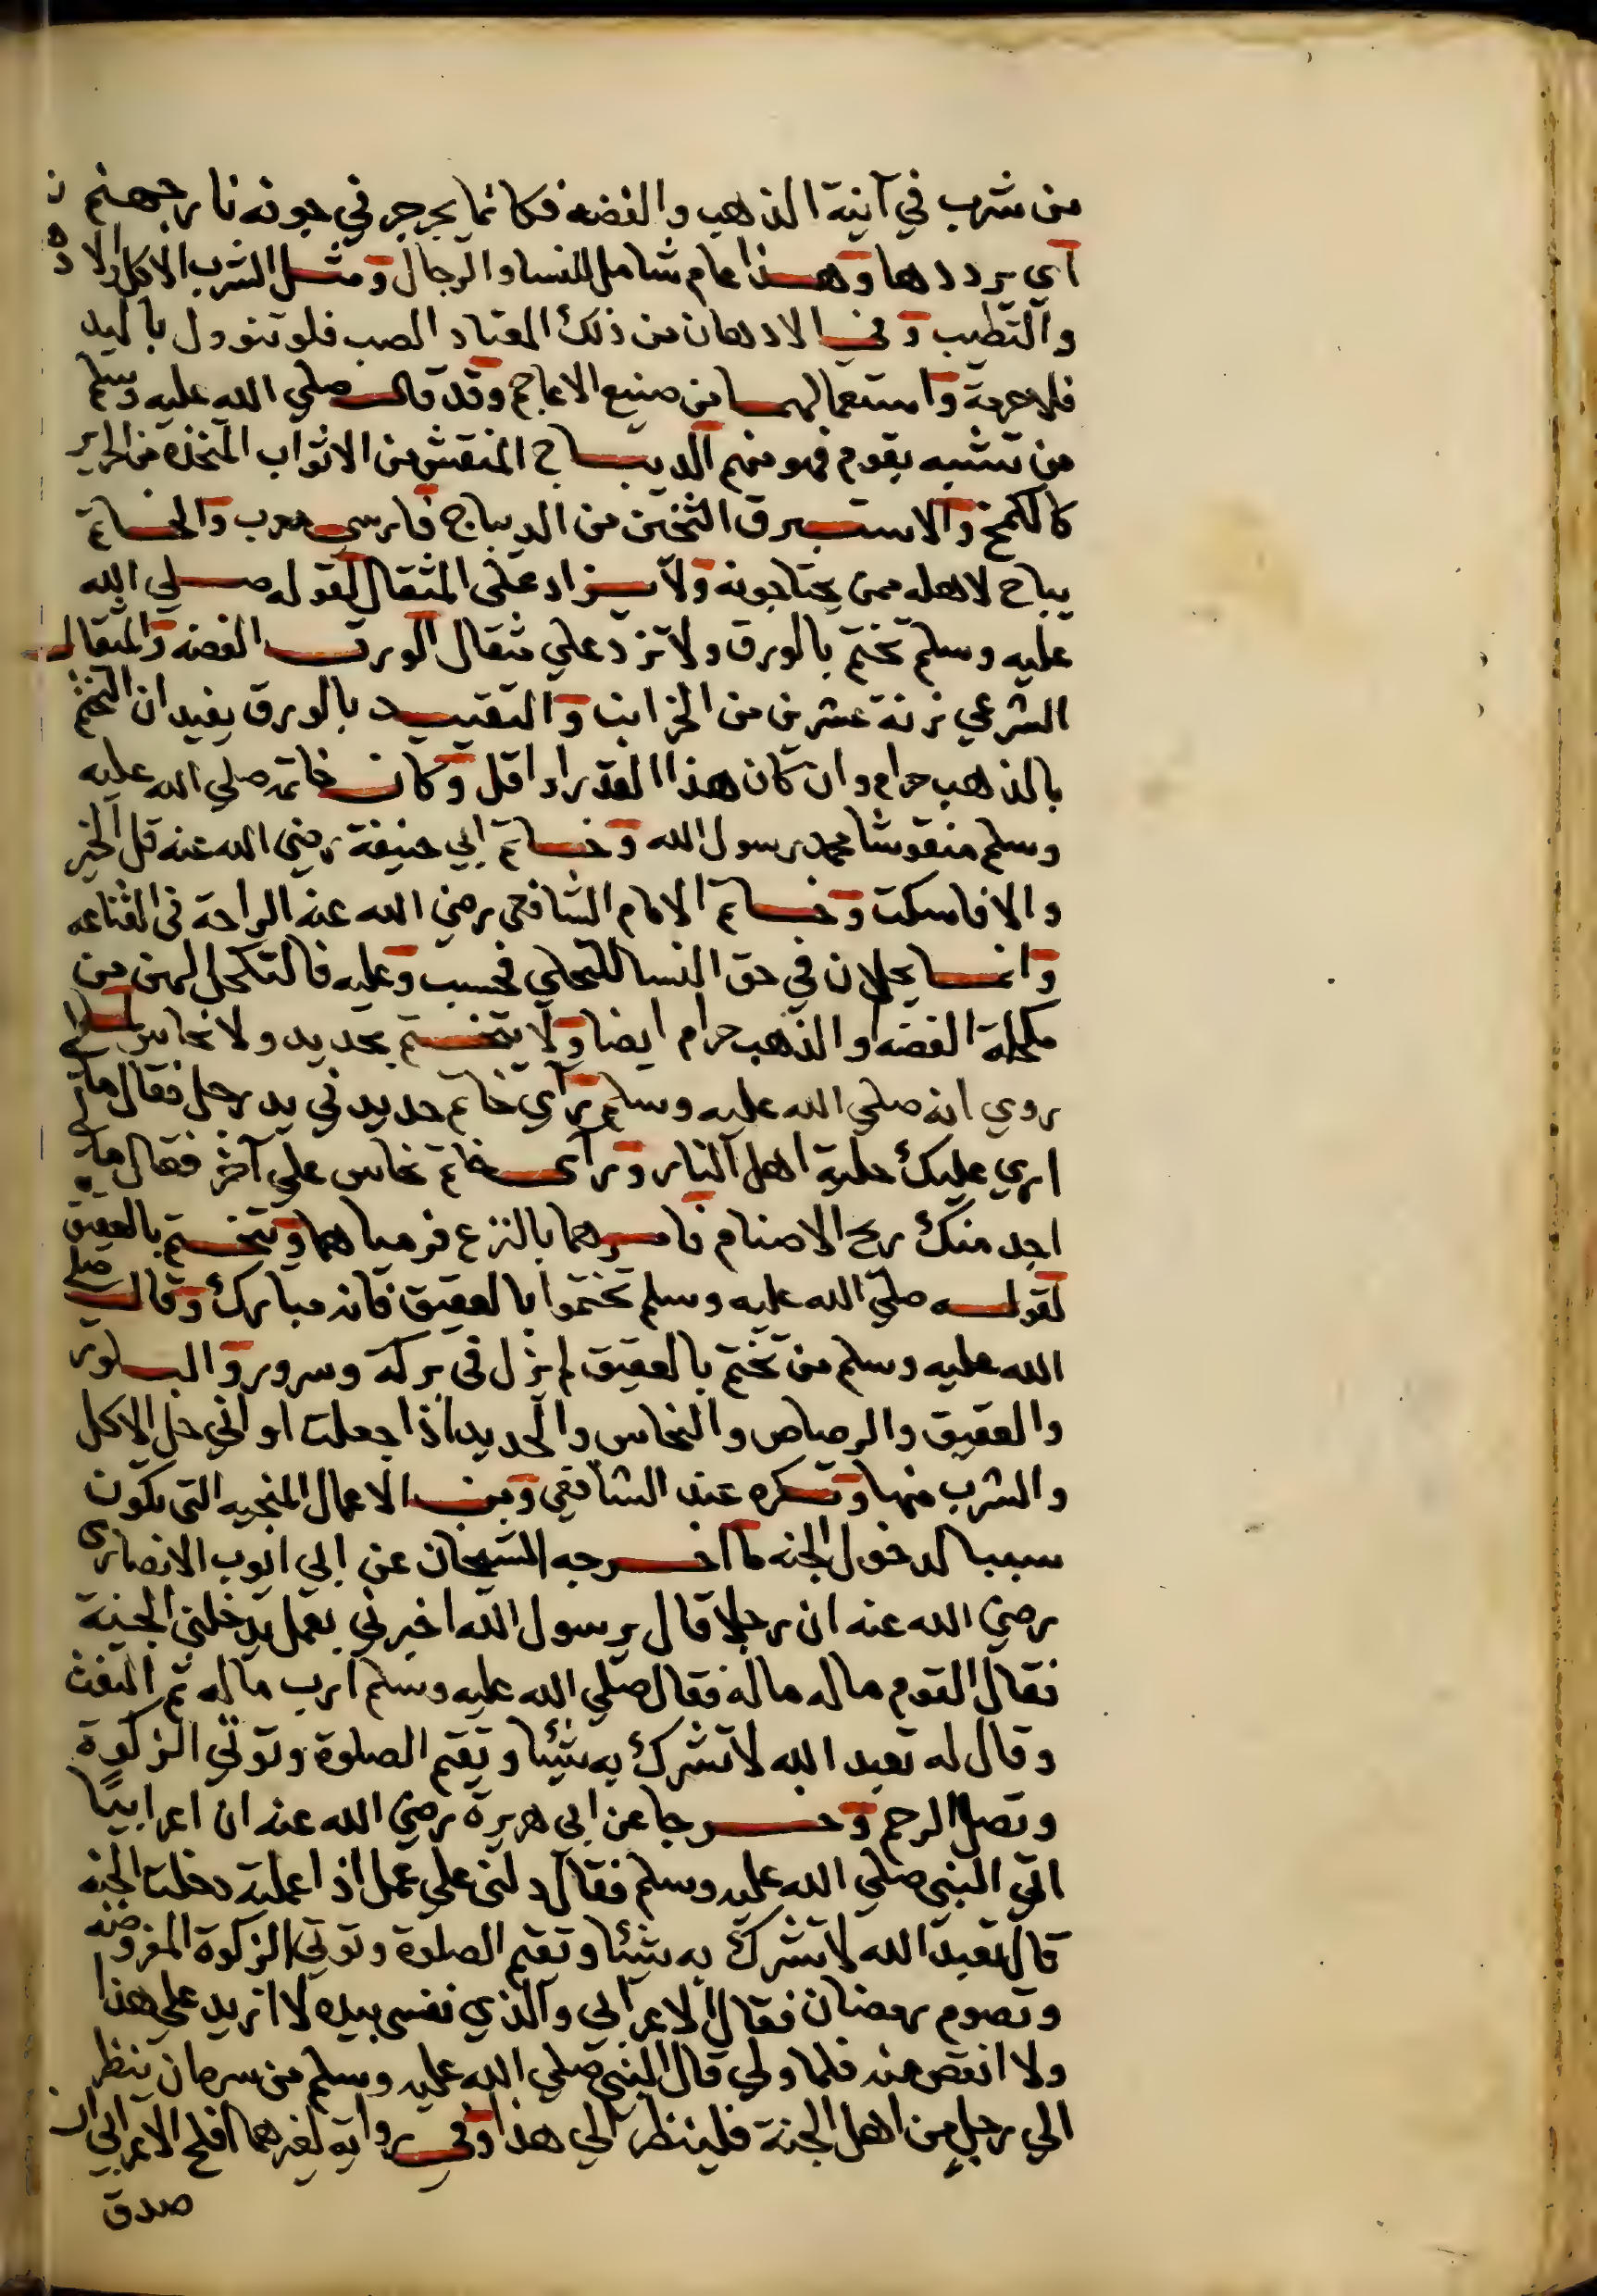 من شرب في آنية الذهب والفضه فكانما يجرجر في جوفه نار جهنم
اي يرددها وهذا عام شامل للنسا والرجال ومثل الشرب الاكل والاد
والتطيب وفي الادهان من ذلك المعتاد الصب فلو تنوول باليد
فلا حرمة واستعمالهما من صنيع الاعاجم وقد قال صلي الله عليه وسلم
من تشبه بقوم فهو منهم الديباج المنقش من الاثواب المتخذة من الحرير
كالكمخ والاستبرق الثخين من الديباج فارسي معرب والخاتم
يباح لاهله ممن يحتاجونه ولا يزاد على المثقال لقوله صلي الله
عليه وسلم تختم بالورق ولا تزد علي مثقال الورق الفضه والمثقال
الشرعي زنة عشرين من الخرانب والتقييد بالورق يفيد ان التختم
بالذهب حرام وان كان هذا القدر او اقل وكان خاتمه صلي الله عليه
وسلم منقوشا محمد رسول الله وخاتم ابي حنيفة رضي الله عنه قل الخير
والا فاسكت وخاتم الامام الشافعي رضي الله عنه الراحة في القناعه
وانما يحلان في حق النسا للتحلي فحسب وعليه فالتكحل لهن من
مكحلة الفضه او الذهب حرام ايضا ولا يتختم بحديد ولا نحاس لما
روي انه صلي الله عليه وسلم رآي خاتم حديد في يد رجل فقال مالي
اري عليك حلية اهل النار ورآى خاتم نحاس علي آخر فقال مالي
اجد منك ريح الاصنام فامرهما بالنزع فرمياهما ويتختم بالعقيق
لقوله صلي الله عليه وسلم تختموا بالعقيق فانه مبارك وقال صلي
الله عليه وسلم من تختم بالعقيق لم يزل في بركة وسرور والبلور
والعقيق والرصاص والنحاس والحديد اذا جعلت اواني حل الاكل
والشرب منها وتكره عند الشافعي ومن الاعمال المنجيه التي تكون
سببا لدخول الجنه ما اخرجه الشيخان عن ابي ايوب الانصاري
رضي الله عنه ان رجلا قال يرسول الله اخبرني بعمل يدخلني الجنة
فقال القوم ماله ماله فقال صلي الله عليه وسلم ارب ماله ثم التفت
وقال له تعبد الله لا تشرك به شيئا وتقم الصلوة وتوتي الزكوة
وتصل الرحم وخرجا عن ابي هريرة رضي الله عنه ان اعرابيًا
اتى النبي صلي الله عليه وسلم فقال دلني علي عمل اذا عملته دخلت الجنه
قال تعبد الله لا تشرك به شيئا وتقم الصلوة وتوتي الزكوة المفروضه
وتصوم رمضان فقال الاعرابي والذي نفسي بيده لا ازيد علي هذا
ولا انقص منه فلما ولي قال النبي صلي الله عليه وسلم من سره ان ينظر
الي رجلٍ من اهل الجنة فلينظر الي هذا وفي رواية لغيرهما افلح الاعرابي ان
صدق